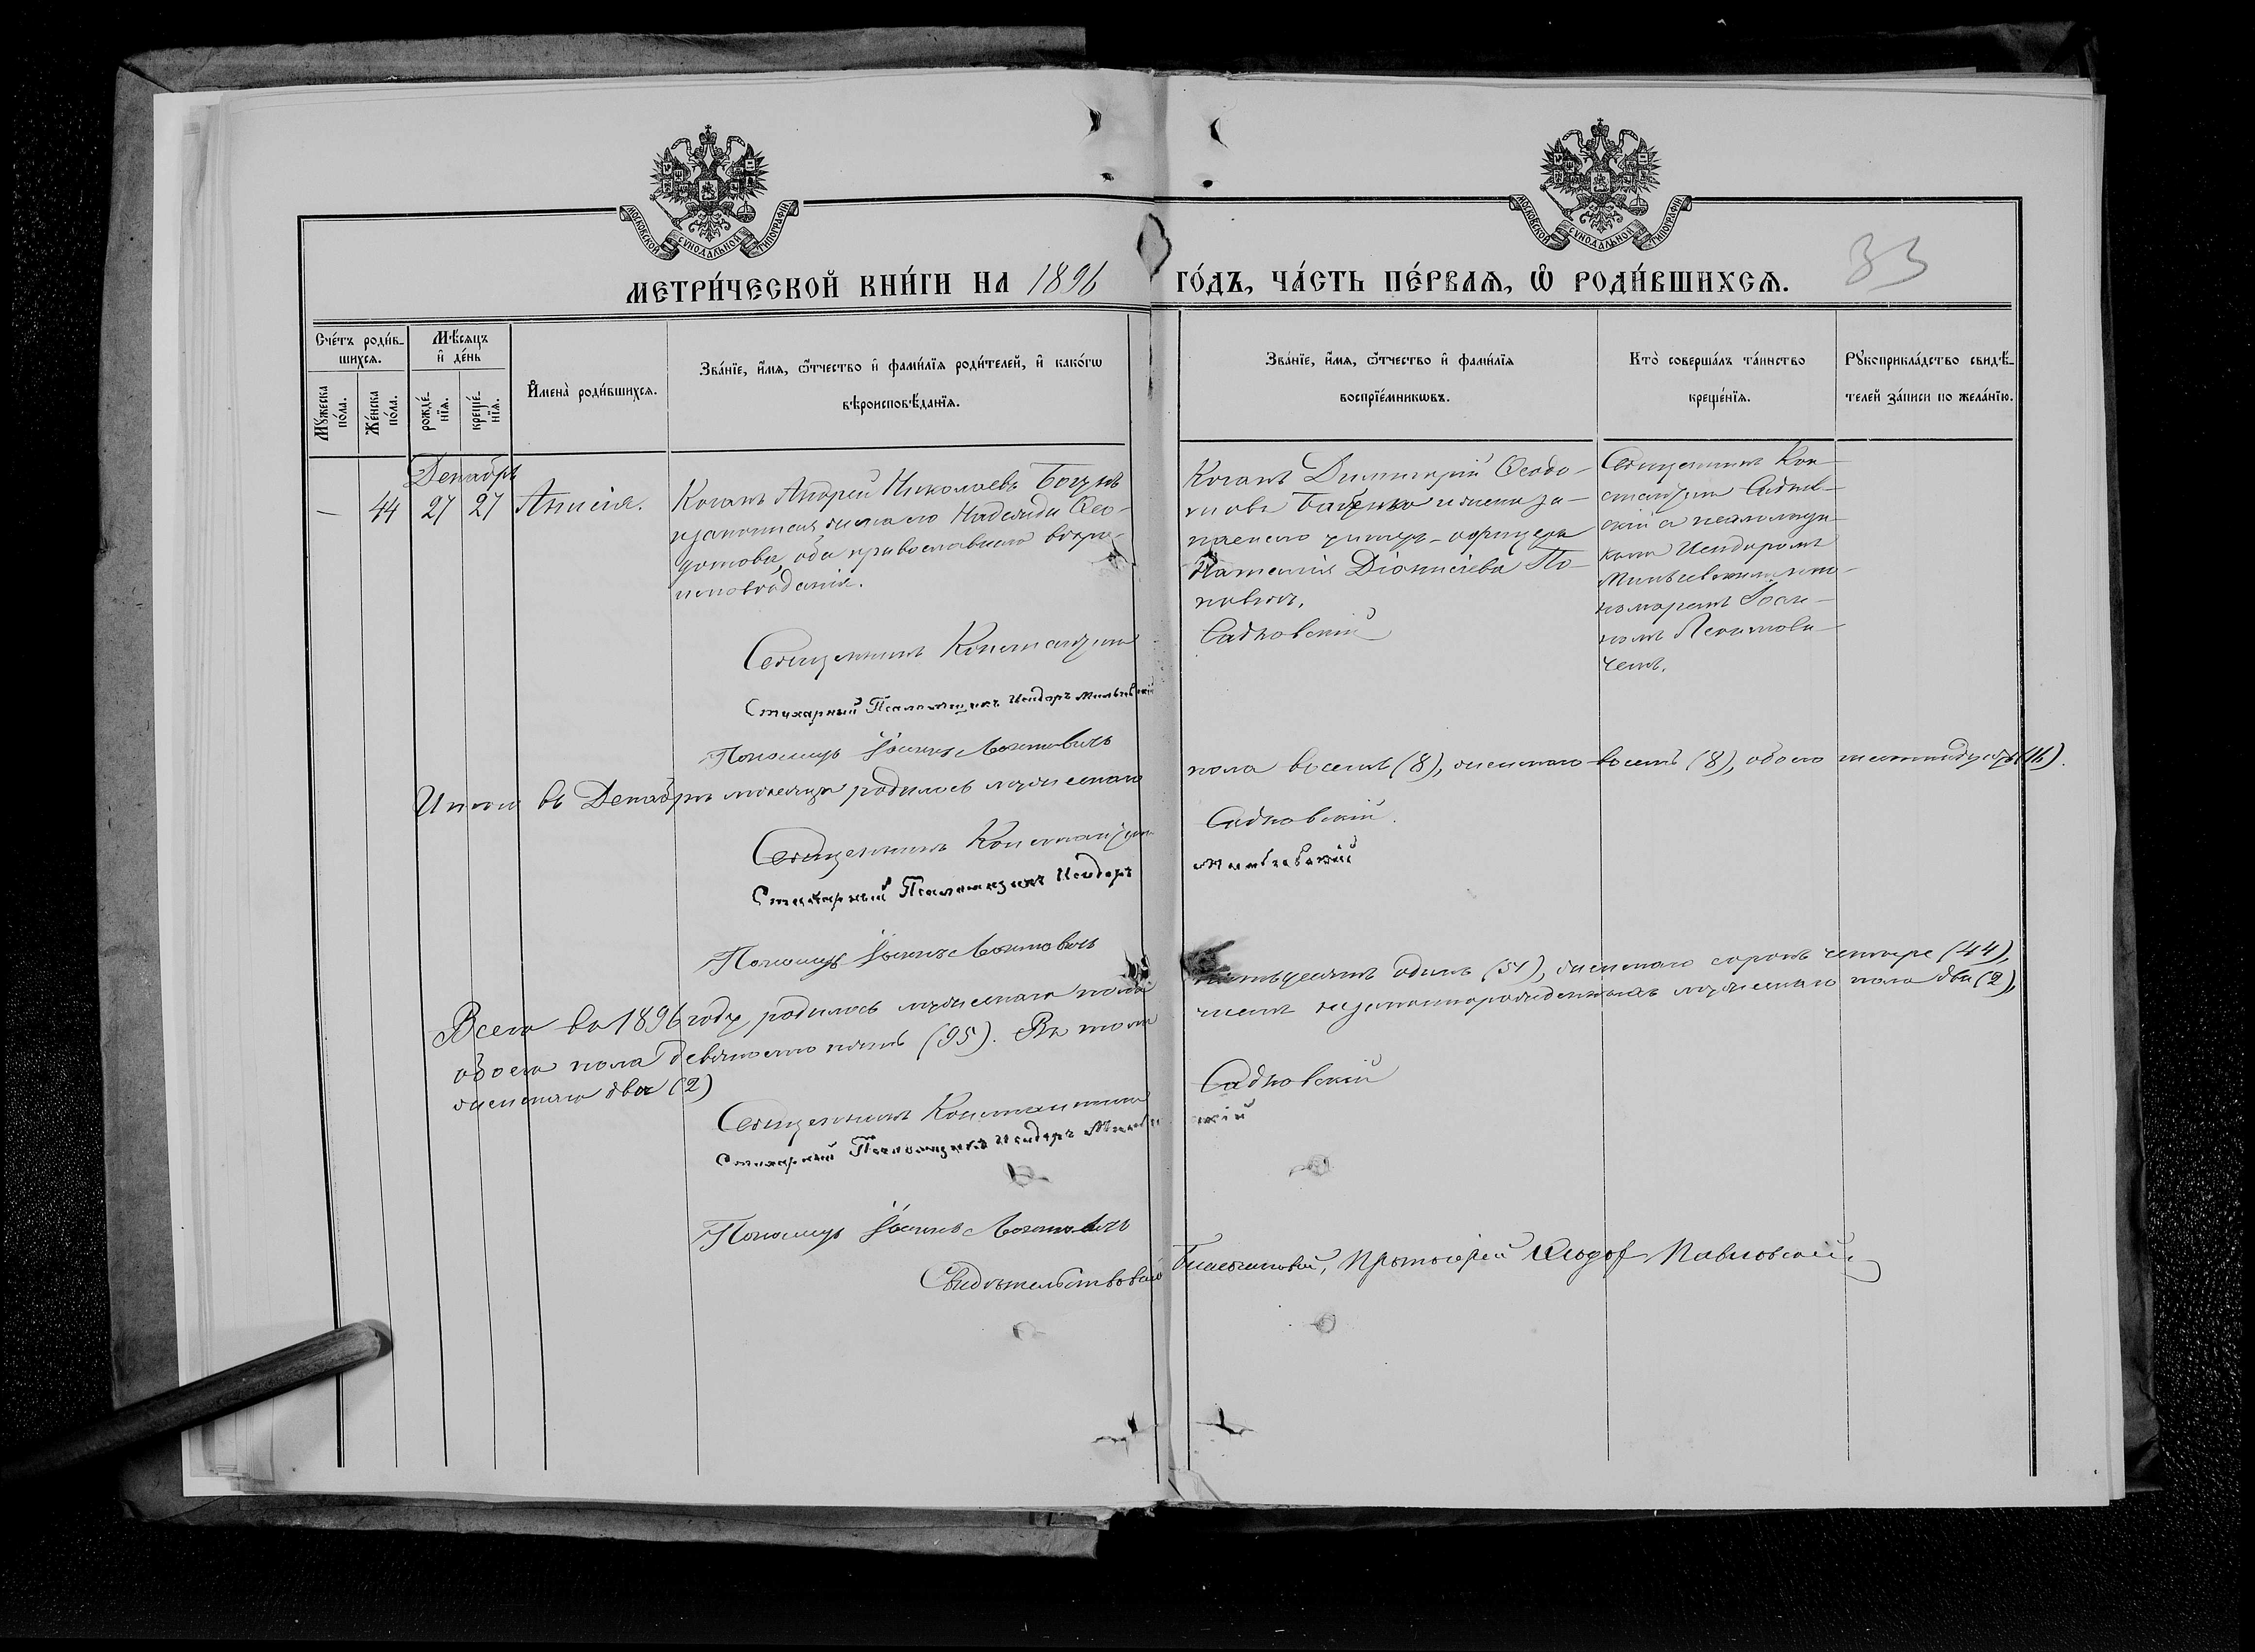 МОСКОВСКОЙ СѴНОДАЛЬНОЙ ТИПОГРАФІИ
МОСКОВСКОЙ СѴНОДАЛЬНОЙ ТИПОГРАФІИ
33
МЕТРИ́ЧЕСКОЙ КНИ́ГИ НА 1896 ГО́ДЪ, ЧА́СТЬ ПЕ́РВАѦ, Ѡ҆ РОДИ́ВШИХСѦ.
Сче́тъ роди́в-
шихсѧ.
Мꙋ́жеска
по́ла.
Же́нска
по́ла.
Мѣ́сѧцъ
и҆ де́нь
рожде́-
нїѧ.
креще́-
нїѧ.
И҆мена̀ роди́вшихсѧ.
Зва́нїе, и҆́мѧ, ѻ҆́тчество и҆ фами́лїѧ роди́телей, и҆ како́гѡ
вѣроисповѣ́данїѧ.
Зва́нїе, и҆́мѧ, ѻ҆́тчество и҆ фами́лїѧ
воспрїе́мникѡвъ.
Кто̀ соверша́лъ та́инство
креще́нїѧ.
Рꙋкоприкла́дство свидѣ́-
телей за́писи по жела́нїю.
Декабрь
— 44 27 27 Анисія.
Козакъ Андрей Николаевъ Богунъ
и законная жена его Надежда Ѳео-
дотова, оба православнаго вѣро-
исповѣданія.
Козакъ Димитрій Ѳеодо-
товъ Бабенко и жена за-
паснаго унтеръ-офицера
Наталія Діонисіева По-
повичъ.
Священникъ Кон-
стантинъ Садков-
скій съ псаломщи-
комъ Исидоромъ
Минѣевскимъ и по-
номаремъ Іоан-
номъ Леонтови-
чемъ.
Священникъ Константинъ Садковскій
Стихарный Псаломщикъ Исидоръ Минѣевскій
Пономарь Іоаннъ Леонтовичъ
Итого въ Декабрѣ мѣсяцѣ родилось мужескаго пола восемь (8), женскаго восемь (8), обоего шестнадцать (16).
Священникъ Константинъ Садковскій.
Стихарный Псаломщикъ Исидоръ Минѣевскій
Пономарь Іоаннъ Леонтовичъ
Всего въ 1896 году родилось мужескаго пола пятьдесятъ одинъ (51), женскаго сорокъ четыре (44),
обоего пола девяносто пять (95). Въ томъ числѣ незаконнорожденныхъ мужескаго пола два (2),
женскаго два (2)
Священникъ Константинъ Садковскій
Стихарный Псаломщикъ Исидоръ Минѣевскій
Пономарь Іоаннъ Леонтовичъ
Свидѣтельствовалъ Благочинный, Протоіерей Ѳеодоръ Павловскій